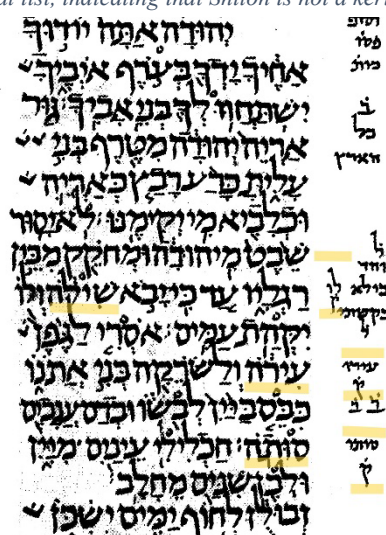 al list, indicating that Shiloh is not a keri
יהודה אתה יודוך
אחיך ידך בערף אויביך
ישתחוו לך בני אביך׃ גור
אריה יהודה מטרף בני
עלית כרע רבץ כאריה
וכלביא מי יקימנו׃ לא יסור
שבט מיהודה ומחקק מבין
רגליו עד כי יבא שילה ולו
יקהת עמים׃ אסרי לגפן
עירה ולשרקה בני אתנו
כבס ביין לבשו ובדם ענבים
סותה׃ חכלילי עינים מיין
ולבן שנים מחלב
זבולן לחוף ימים ישכן
ב
כל
הארץ
ל
עירו
ק
ב ב
סותו
ק